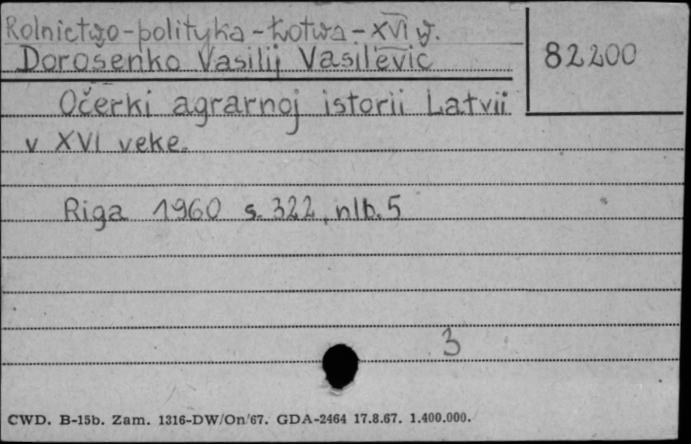 Rolnictwo-polityka-Łotwa-XVI w.
82200
Dorošenko Vasilij Vasilevič
Očerki agrarnoj istorii Latvii
v XVI veke.
Riga 1960 s. 322, nlb. 5
3
CWD. B-15b. Zam. 1316-DW/On/67. GDA-2464 17.8.67. 1.400.000.